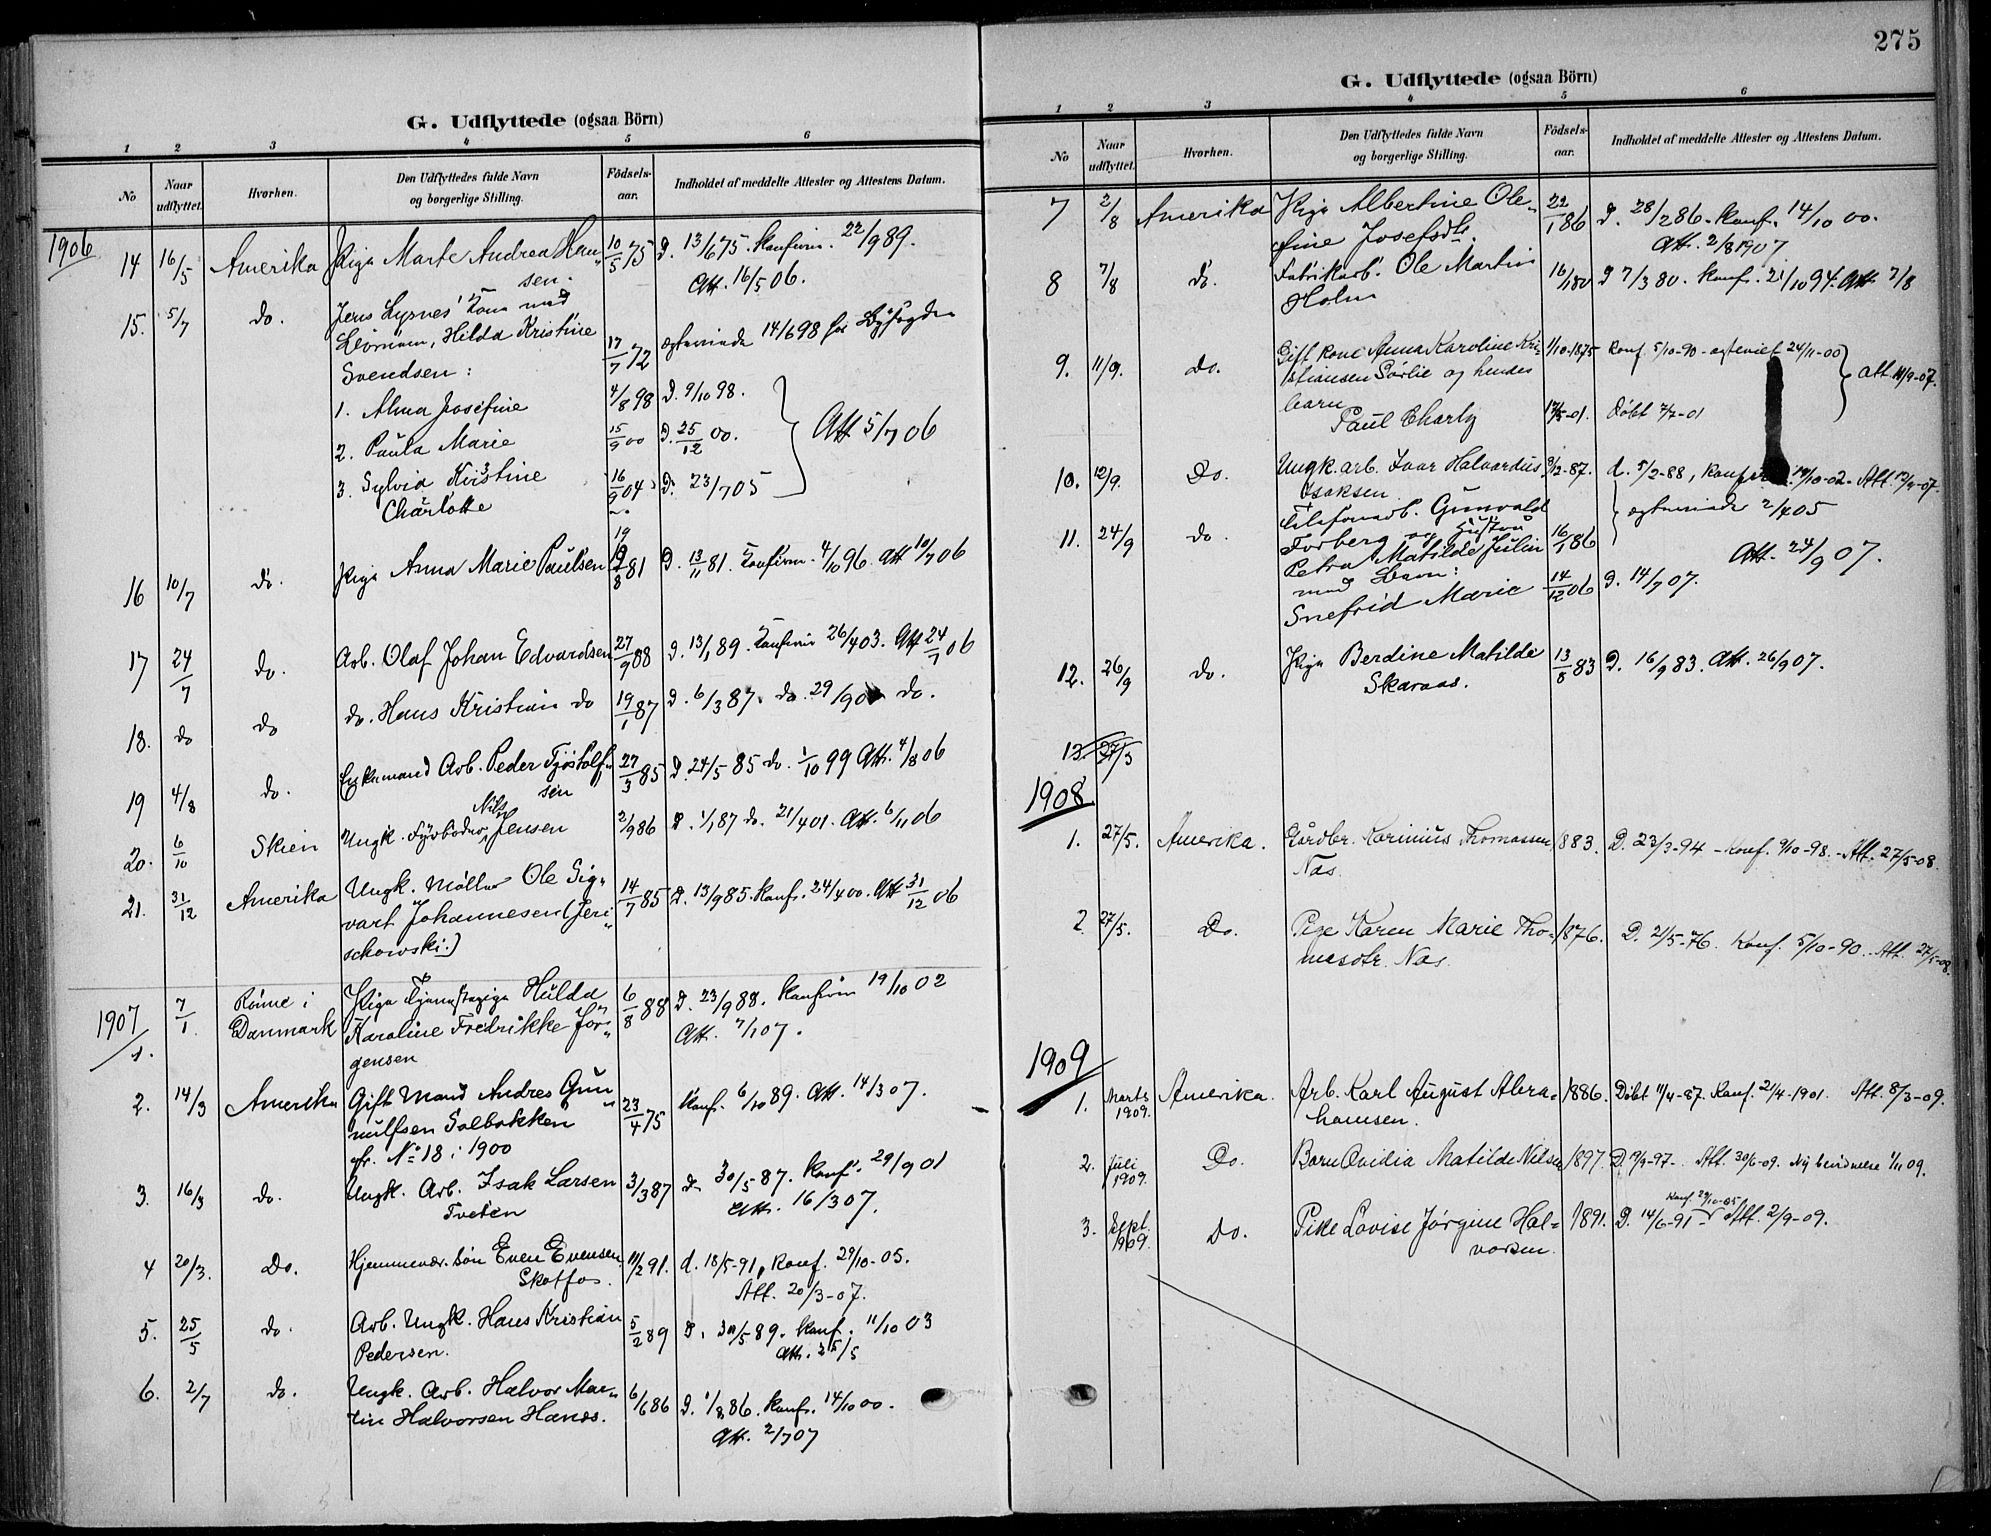 G. Udflyttede (ogsaa Börn)
1 2 3 4 5 6
No Naar udflyttet. Hvorhen. Den Udflyttedes fulde Navn og borgerlige Stilling. Födsels-aar. Indholdet af meddelte Attester og Attestens Datum.
1906
14 16/5 Amerika Pige Marte Andrea Han- 10/5 75 D. 13/6 75. Konfirm. 22/9 89.
sen. Att. 16/5 06.
15. 5/7 do. Jens Lysnes' Kone med
Börnene, Hilda Kristine 17/7 72 ægteviede 14/6 98 for
Svendsen:
1. Alma Josefine 4/8 98 D. 9/10 98.
2. Paula Marie 15/9 00 D. 25/12 00. Att 5/7 06
3. Sylvia Kristine 16/9 04 D. 23/7 05
Charlotte
16 10/7 do. Pige Anna Marie Paulsen 19/8 81 D. 13/11 81. Konfirm. 4/10 96. Att 10/7 06
17 24/7 do. Arb. Olaf Johan Edvardsen 27/9 88 D. 13/1 89. Konfirm 26/4 03. Att 24/7 06
18. do do do. Hans Kristian do 19/1 87 D. 6/3 87. do. 29/9 do.
19 4/8 do. Enkemand Arb. Peder Tjöstolf- 27/3 85 D. 24/5 85 do. 1/10 99 Att. 4/8 06
sen
20. 6/10 Skien Ungk. Fyrböder Nils Jensen 2/9 86 D. 1/1 87 do. 21/4 01. Att. 6/11 06
21. 31/12 Amerika Ungk. Möller Ole Sig- 14/7 85 D. 13/9 85. Konf. 24/4 00. Att 31/12 06
vart Johannesen (Jeri-
schowski.)
1907
1. 7/1 Rönne i Pige Tjenestepige Hulda 6/8 88 D. 23/9 88. Konfirm 19/10 02
Danmark Karoline Fredrikke Jör- Att. 7/1 07.
gensen
2. 14/3 Amerika Gift Mand Andres Gun- 23/4 75 Konf. 6/10 89. Att. 14/3 07.
nulfsen Solbakken
fr. No 18 i 1900
3. 16/3 do. Ungk. Arb. Isak Larsen 3/3 87 D. 30/5 87. Konf. 29/9 01
Tveten Att. 16/3 07.
4 20/3. Do. Hjemmevær. sön Even Evensen 11/2 91. d. 18/5-91, Konf. 29/10-05.
Skotfos. Att. 20/3-07.
5. 25/5 do. Arb. Ungk. Hans Kristian 5/2 89 D. 30/5 89. Konf. 11/10 03
Pedersen. Att. 25/5
6. 2/7 do. Ungk. Arb. Halvor Mar- 6/6 86 D. 1/8 86. Konf. 14/10 00.
tin Halvorsen Hanes. Att. 2/7 07
275
G. Udflyttede (ogsaa Börn)
1 2 3 4 5 6
No Naar udflyttet. Hvorhen. Den Udflyttedes fulde Navn og borgerlige Stilling. Födsels-aar. Indholdet af meddelte Attester og Attestens Datum.
7 2/8 Amerika Pige Albertine Ole- 22/1 86 D. 28/2 86. Konf. 14/10 00.
fine Josefsdt. Att. 2/8 1907
8 7/8 do. Fabrikarb. Ole Martin 16/1 80 D 7/3 80. Konf. 21/10 94. Att 7/8
Holm
9. 11/9. Do. Gift kone Anna Karoline Kri- 1/10-1875 Konf. 5/10-90 - ægteviet 24/11-00
stiansen Sörlie og hendes Att. 11/9-07.
barn
Paul Charly 12/5-01. Döbt 7/7-01
10. 12/9. Do. Ungk. arb. Ivar Halvardus 9/12-87. d. 5/2-88, Konf. 19/10-02. Att. 12/9-07.
Isaksen
11. 24/9 do. Telefonarb. Gunvald ægteviede 2/4 05
Forberg og Hustru
Petra Matilde Julin 16/1 86 Att. 24/9 07.
med Barn:
Snefrid Marie 14/12 06 D. 14/7 07.
12. 26/9 do. Pige Berdine Matilde 13/8 83 D. 16/9 83. Att. 26/9 07.
Skaraas.
13 27/3
1908
1. 27/5. Amerika. Gårdbr. Karinius Thomassen 1883. D. 23/3-94 - Konf. 9/10-98. - Att. 27/5-08.
Næs.
2 27/5. Do. Pige Karen Marie Tho- 1876. D. 21/5-76. Konf. 5/10-90. - Att. 27/5-08.
masdtr. Næs.
1909
1. Marts 1909. Amerika. Arb. Karl August Abra- 1886. Döbt 11/4-87. Konf. 21/4-1901. Att. 8/3-09.
hamsen.
2. Juli 1909. Do. Barn Ovidia Matilde Nilsen 1897. D. 9/9-97 -. Att. 30/6-09. Ny bevidnelse 1/11 09.
Konf. 29/10-05
3. Sept. 1909. Do. Pike Lovise Jörgine Hal- 1891. D. 14/6-91 - Att. 2/9-09.
vorsen.